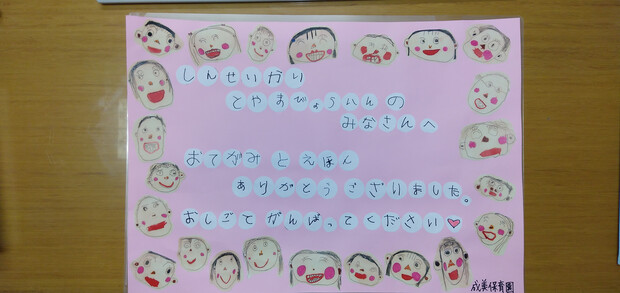 しんせいかい
とやまびょういんの
みなさんへ
おてがみとえほん
ありがとうございました。
おしごとがんばってください♥
成美保育園